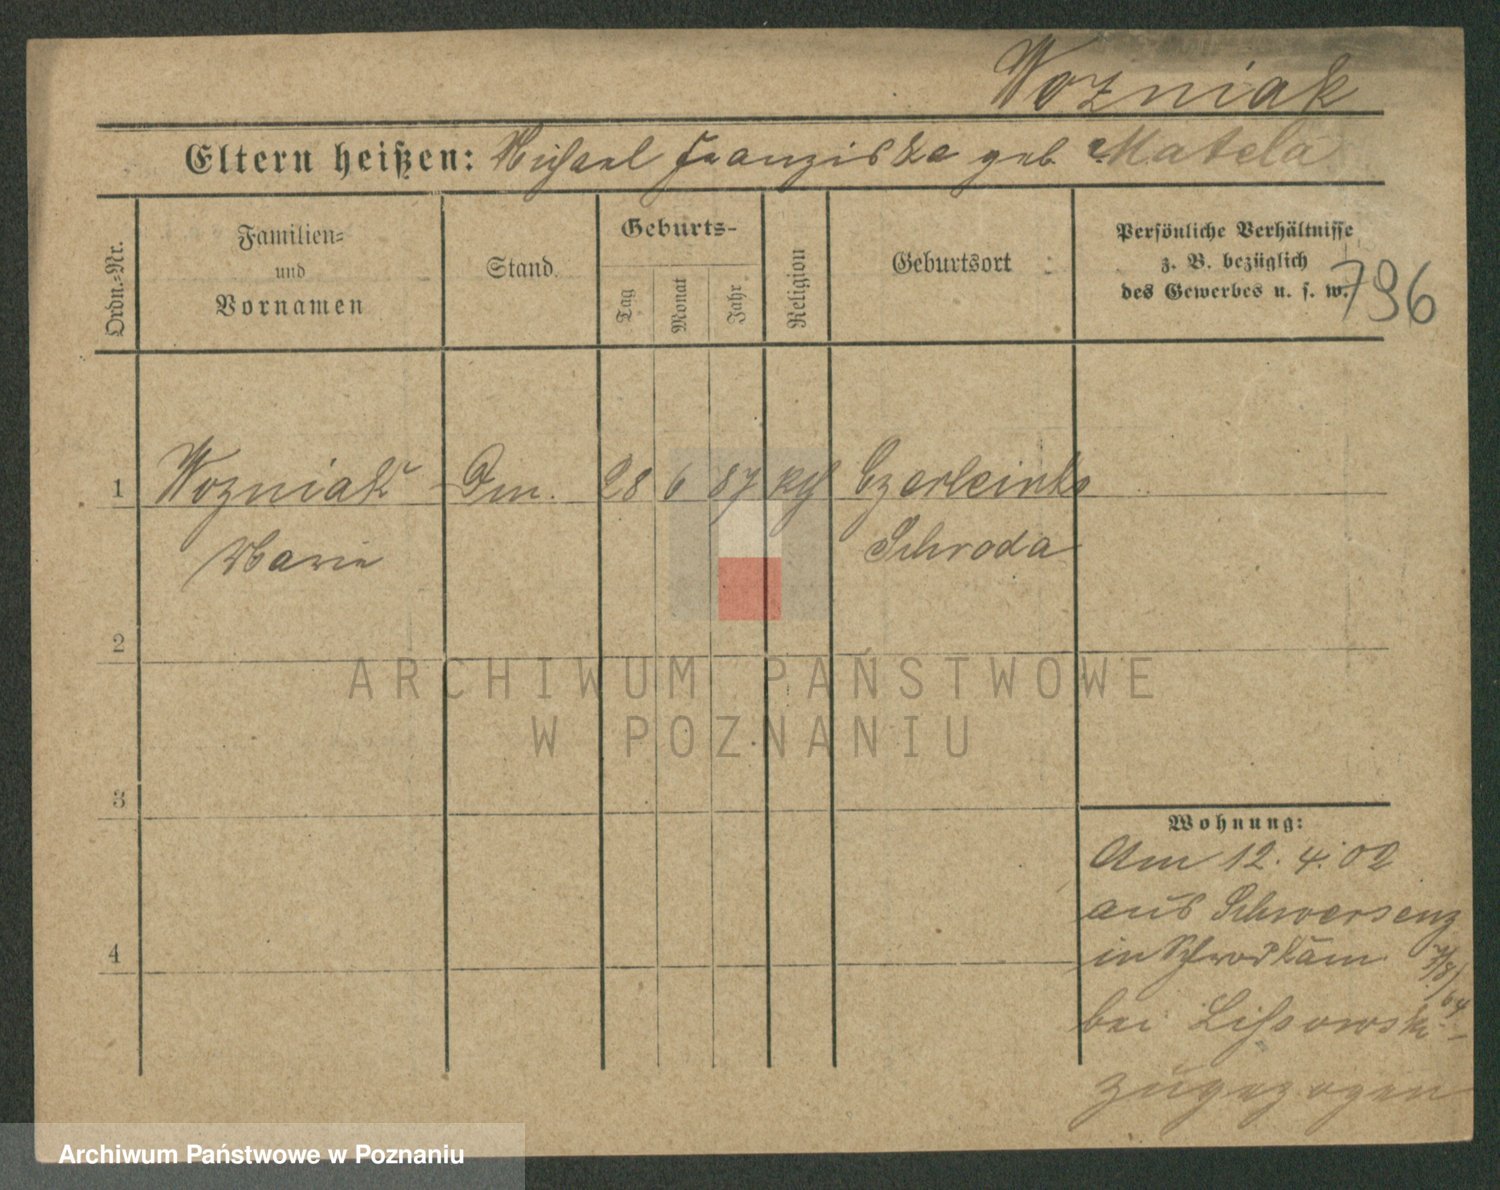 Wozniak
Eltern heißen: Michael Franziska geb. Matela
Ordn.-Nr.
Familien-
und
Vornamen
Stand.
Geburts-
Tag
Monat
Jahr
Religion
Geburtsort
Persönliche Verhältnisse
z. B. bezüglich
des Gewerbes u. s. w.
796
1 Wozniak 28 6 87 kth Czerleinko
Marie Schroda
2
3
4
Wohnung:
Am 12. 4. 02
aus Schwersenz
in
bei Lissowski
zugezogen
ARCHIWUM PAŃSTWOWE
W POZNANIU
Archiwum Państwowe w Poznaniu